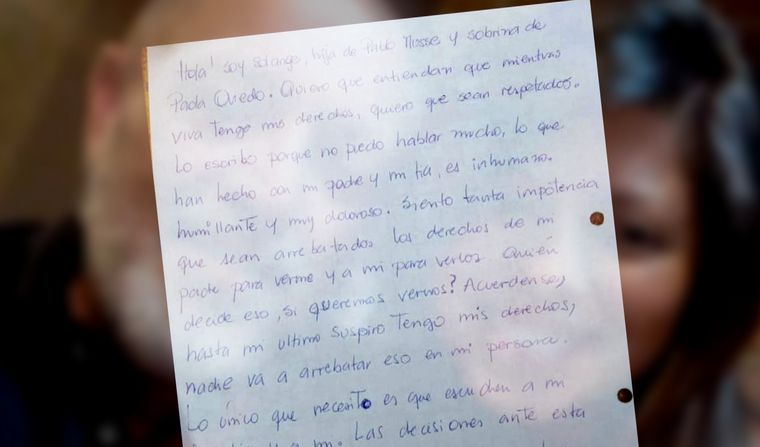 Hola! soy Solange, hija de Pablo Musse y sobrina de
Paola Oviedo. Quiero que entiendan que mientras
viva Tengo mis derechos, quiero que sean respetados.
Lo escribo porque no puedo hablar mucho, lo que
han hecho con mi padre y mi tia, es inhumano.
humillante y muy doloroso. Siento tanta impotencia
que sean arrebatados los derechos de mi
padre para verme y a mi para verlos Quién
decide eso, si queremos vernos? Acuerdense,
hasta mi ultimo suspiro Tengo mis derechos,
nadie va a arrebatar eso en mi persona.
Lo único que necesito es que escuchen a mi
Las decisiones ante esta